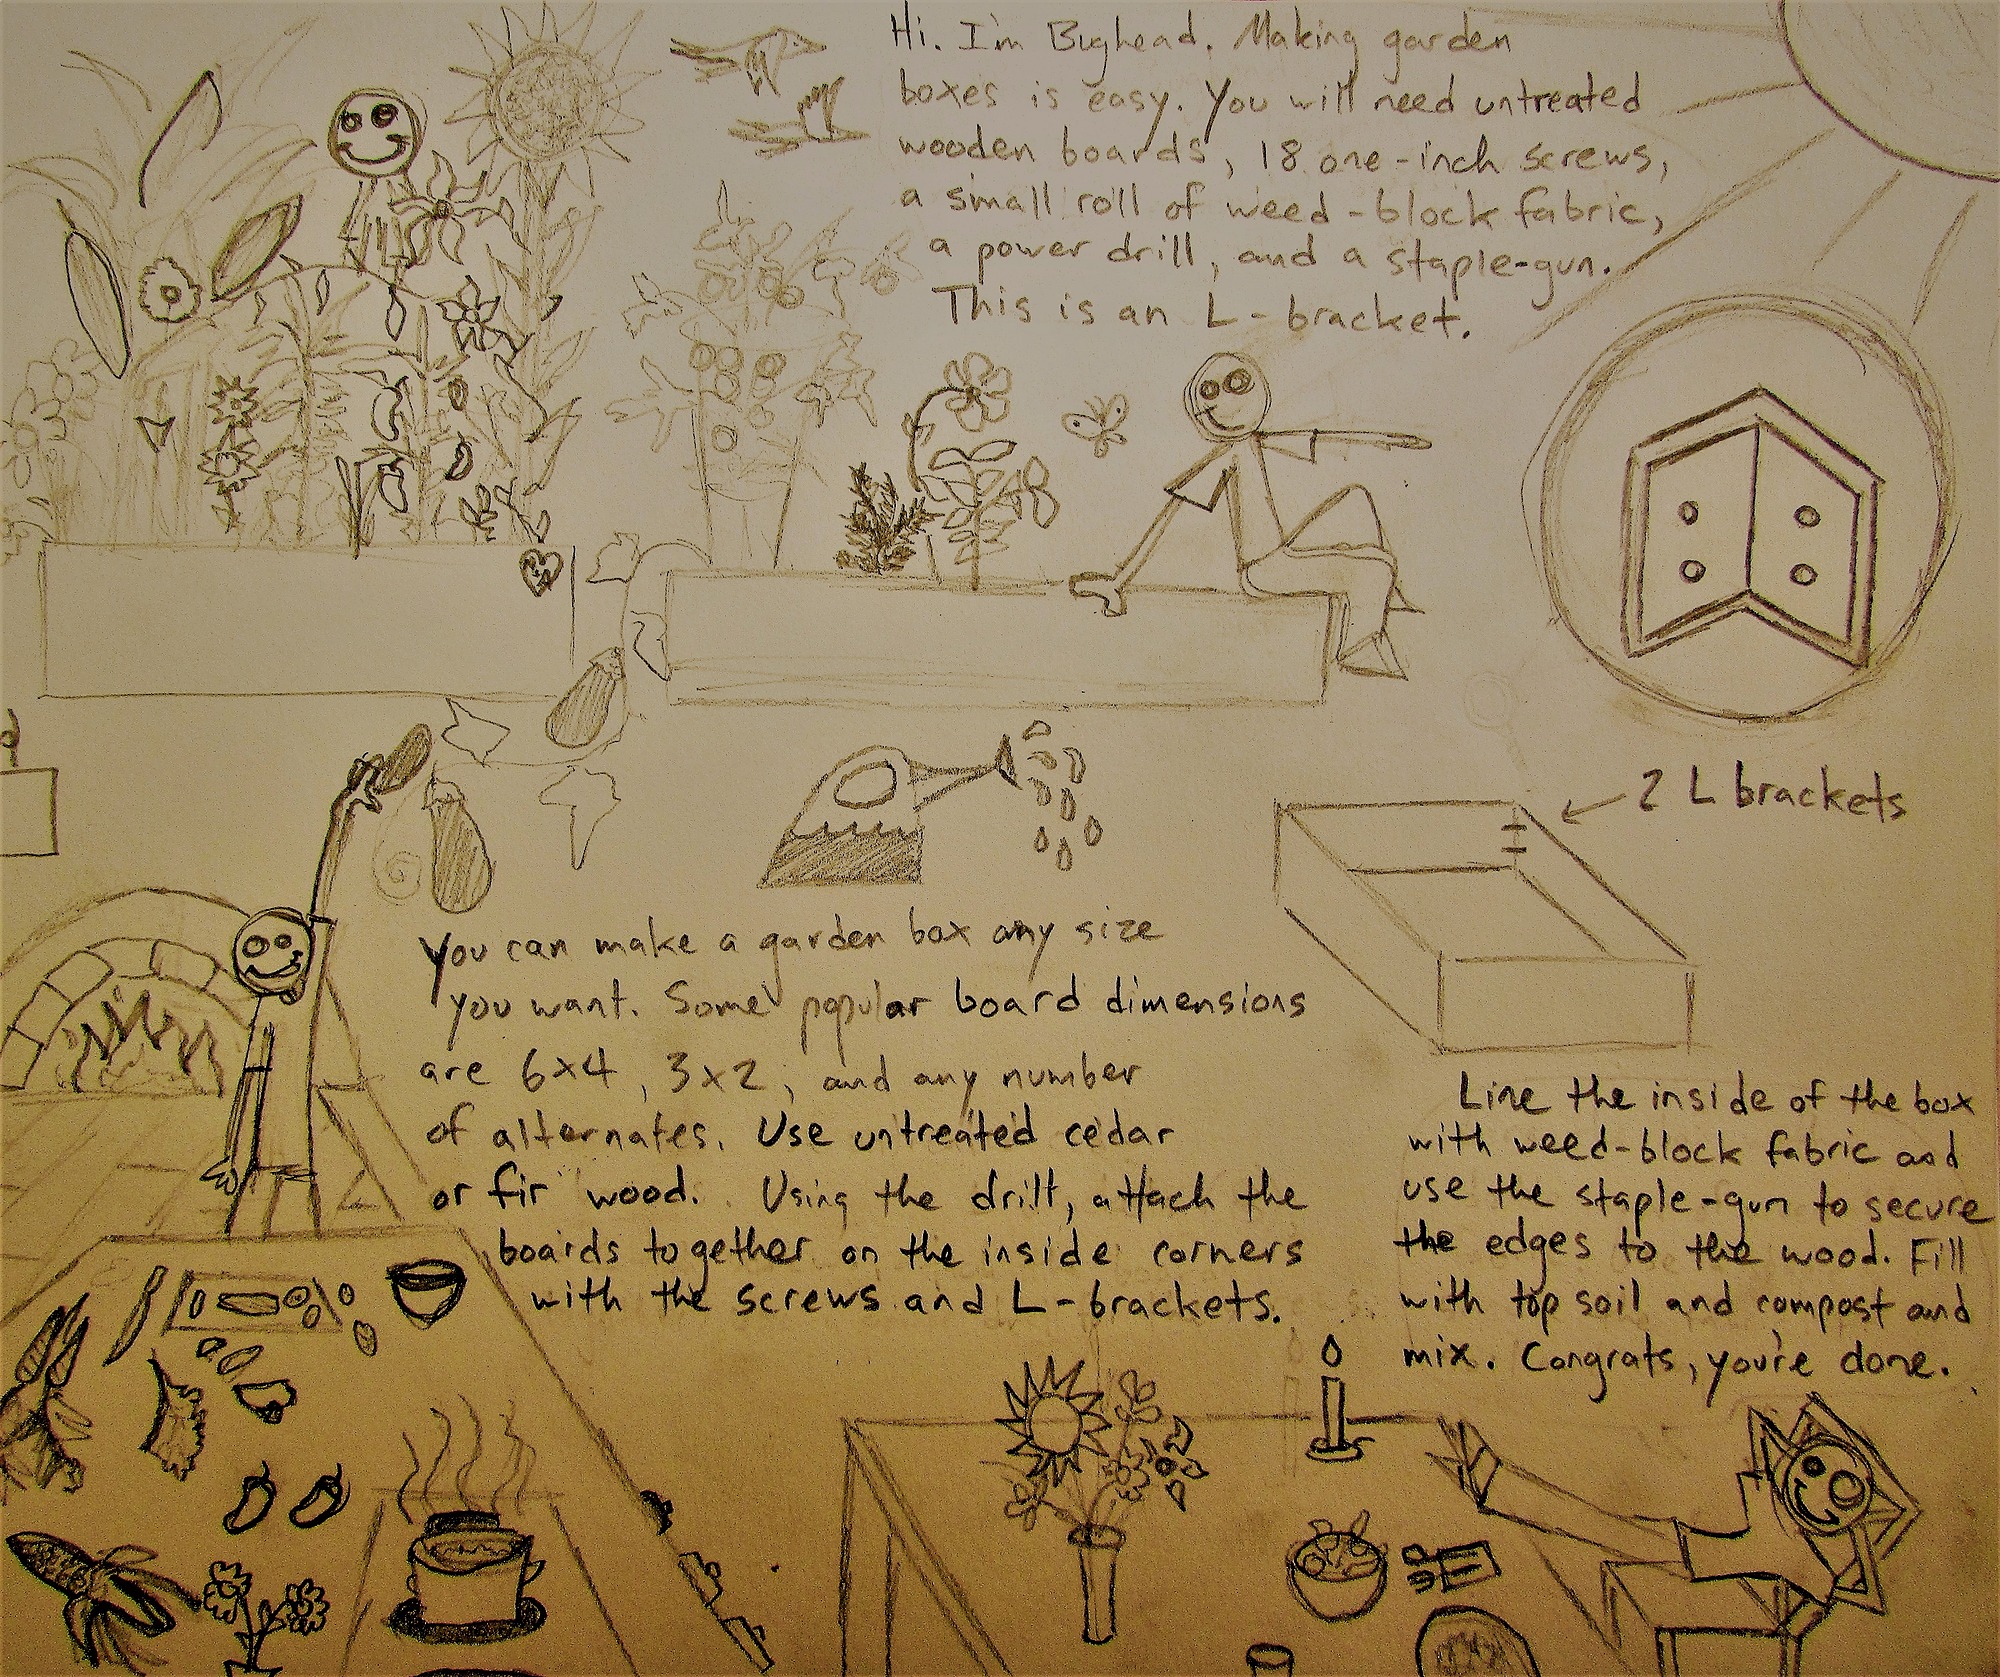 Hi. I'm Bughead. Making garden
boxes is easy. You will need untreated
wooden boards, 18 one-inch screws,
a small roll of weed-block fabric,
a power drill, and a staple-gun.
This is an L-bracket.
2 L brackets
You can make a garden box any size
you want. Some popular board dimensions
are 6x4, 3x2, and any number
of alternates. Use untreated cedar
or fir wood. Using the drill, attach the
boards together on the inside corners
with the screws and L-brackets.
Line the inside of the box
with weed-block fabric and
use the staple-gun to secure
the edges to the wood. Fill
with top soil and compost and
mix. Congrats, you're done.